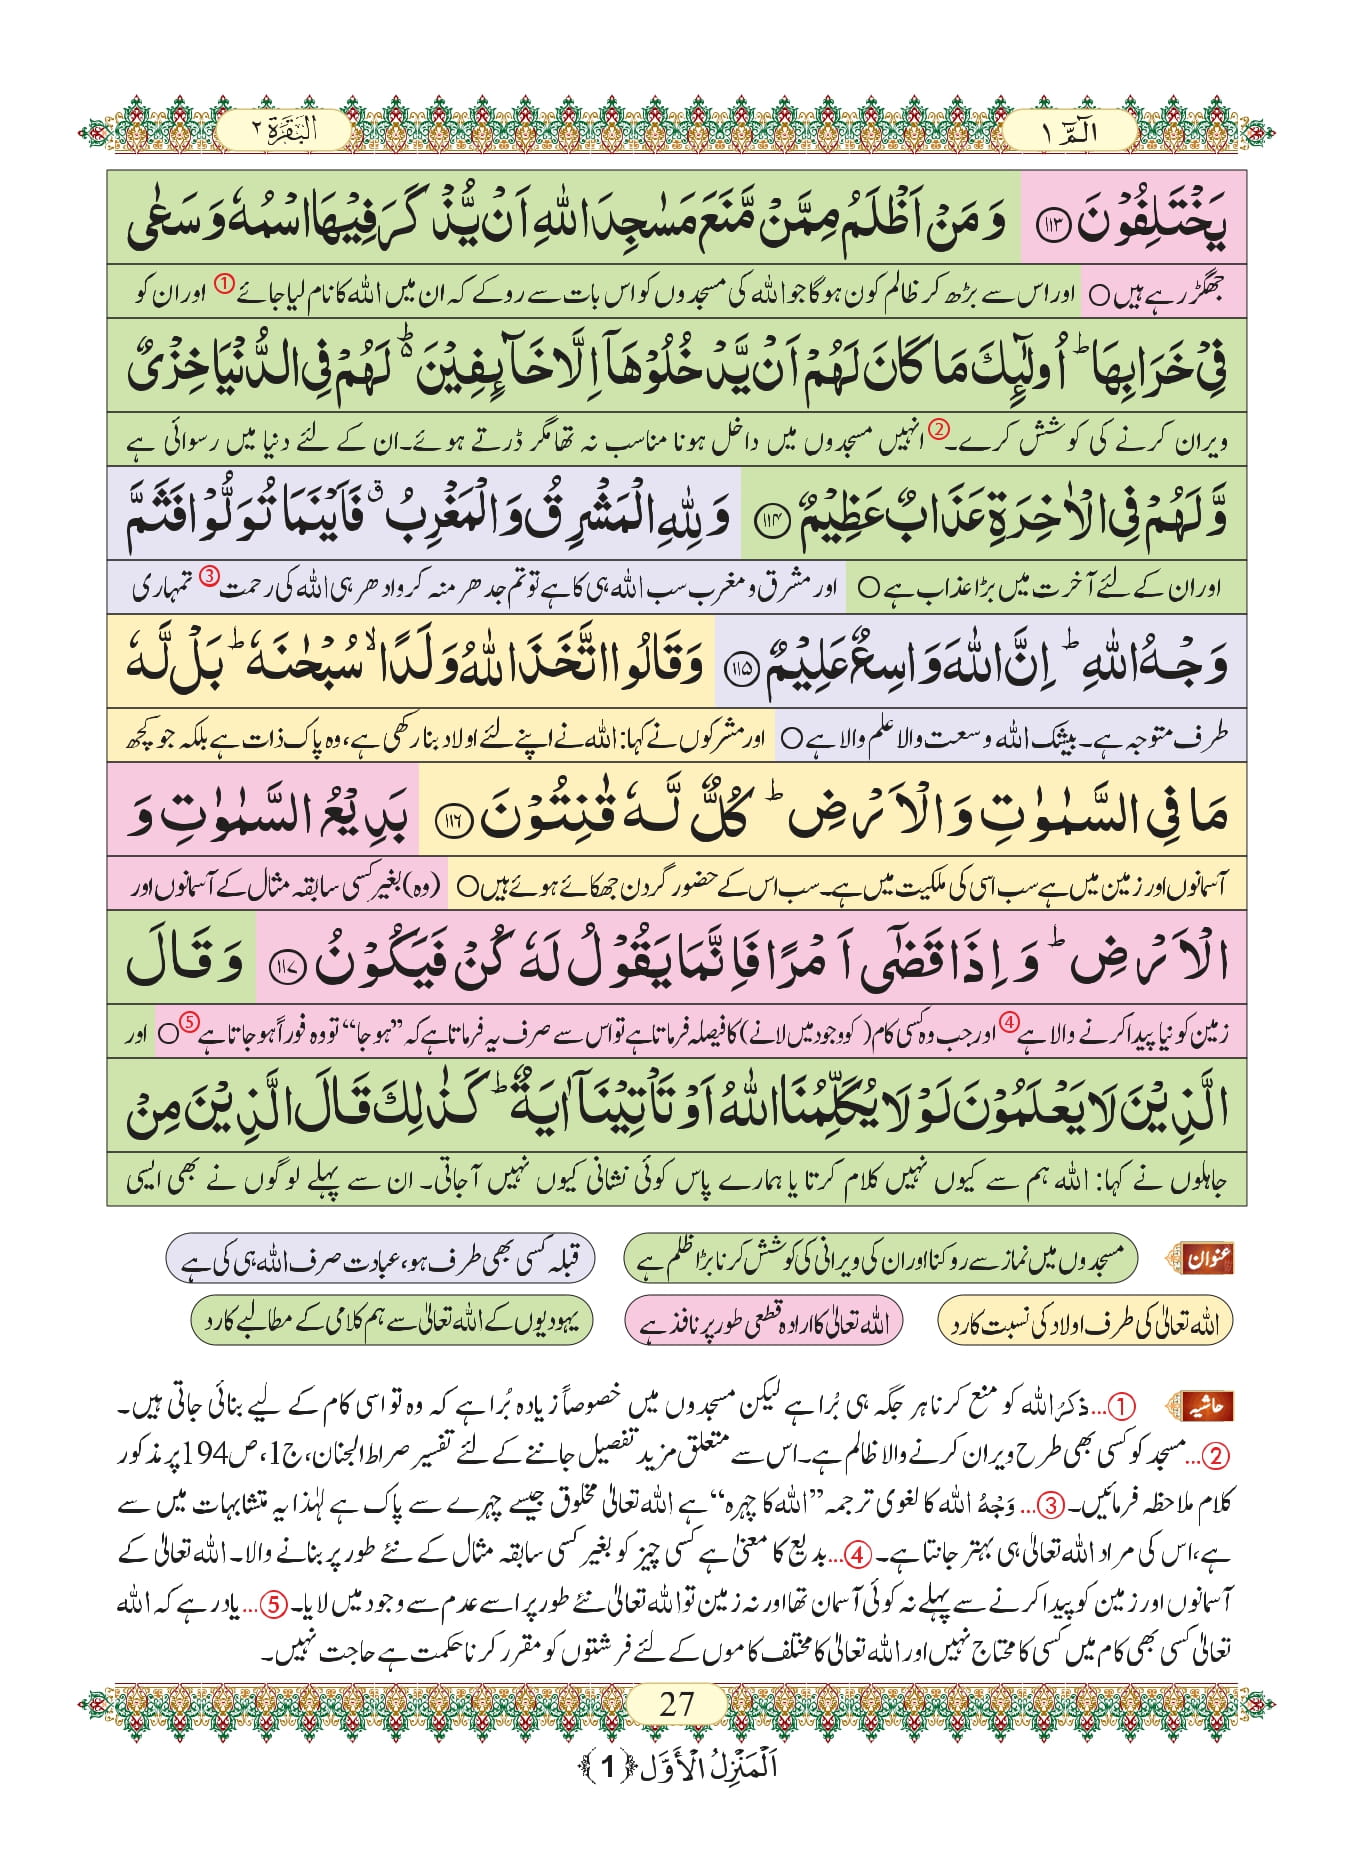 الٓمّٓ ۱
البقرۃ ۲
یَخْتَلِفُوْنَ ﴿۱۱۳﴾ وَ مَنْ اَظْلَمُ مِمَّنْ مَّنَعَ مَسٰجِدَ اللّٰهِ اَنْ یُّذْكَرَ فِیْهَا اسْمُهٗ وَ سَعٰى
جھگڑ رہے ہیں ○ اور اس سے بڑھ کر ظالم کون ہوگا جو اللہ کی مسجدوں کو اس بات سے روکے کہ ان میں اللہ کا نام لیا جائے ① اور ان کو
فِیْ خَرَابِهَاؕ اُولٰٓىٕكَ مَا كَانَ لَهُمْ اَنْ یَّدْخُلُوْهَاۤ اِلَّا خَآىٕفِیْنَ۬ؕ لَهُمْ فِی الدُّنْیَا خِزْیٌ
ویران کرنے کی کوشش کرے۔ ② انہیں مسجدوں میں داخل ہونا مناسب نہ تھا مگر ڈرتے ہوئے۔ ان کے لئے دنیا میں رسوائی ہے
وَّ لَهُمْ فِی الْاٰخِرَةِ عَذَابٌ عَظِیْمٌ ﴿۱۱۴﴾ وَ لِلّٰهِ الْمَشْرِقُ وَ الْمَغْرِبُۗ فَاَیْنَمَا تُوَلُّوْا فَثَمَّ
اور ان کے لئے آخرت میں بڑا عذاب ہے ○ اور مشرق و مغرب سب اللہ ہی کا ہے تو تم جدھر منہ کرو ادھر ہی اللہ کی رحمت ③ تمہاری
وَجْهُ اللّٰهِؕ اِنَّ اللّٰهَ وَاسِعٌ عَلِیْمٌ ﴿۱۱۵﴾ وَ قَالُوا اتَّخَذَ اللّٰهُ وَلَدًاۙ سُبْحٰنَهٗؕ بَلْ لَّهٗ
طرف متوجہ ہے۔ بیشک اللہ وسعت والا علم والا ہے ○ اور مشرکوں نے کہا: اللہ نے اپنے لئے اولاد بنا رکھی ہے، وہ پاک ذات ہے بلکہ جو کچھ
مَا فِی السَّمٰوٰتِ وَ الْاَرْضِؕ كُلٌّ لَّهٗ قٰنِتُوْنَ ﴿۱۱۶﴾ بَدِیْعُ السَّمٰوٰتِ وَ
آسمانوں اور زمین میں ہے سب اسی کی ملکیت میں ہے۔ سب اس کے حضور گردن جھکائے ہوئے ہیں ○ (وہ) بغیر کسی سابقہ مثال کے آسمانوں اور
الْاَرْضِؕ وَ اِذَا قَضٰۤى اَمْرًا فَاِنَّمَا یَقُوْلُ لَهٗ كُنْ فَیَكُوْنُ ﴿۱۱۷﴾ وَ قَالَ
زمین کو نیا پیدا کرنے والا ہے ④ اور جب وہ کسی کام (کو وجود میں لانے) کا فیصلہ فرماتا ہے تو اس سے صرف یہ فرماتا ہے کہ ”ہو جا“ تو وہ فوراً ہو جاتا ہے ⑤ ○ اور
الَّذِیْنَ لَا یَعْلَمُوْنَ لَوْ لَا یُكَلِّمُنَا اللّٰهُ اَوْ تَاْتِیْنَاۤ اٰیَةٌؕ كَذٰلِكَ قَالَ الَّذِیْنَ مِنْ
جاہلوں نے کہا: اللہ ہم سے کیوں نہیں کلام کرتا یا ہمارے پاس کوئی نشانی کیوں نہیں آجاتی۔ ان سے پہلے لوگوں نے بھی ایسی
عنوان مسجدوں میں نماز سے روکنا اور ان کی ویرانی کی کوشش کرنا بڑا ظلم ہے قبلہ کسی بھی طرف ہو، عبادت صرف اللہ ہی کی ہے
اللہ تعالیٰ کی طرف اولاد کی نسبت کا رد اللہ تعالیٰ کا ارادہ قطعی طور پر نافذ ہے یہودیوں کے اللہ تعالیٰ سے ہم کلامی کے مطالبے کا رد
حاشیہ ①...ذکرُ اللہ کو منع کرنا ہر جگہ ہی بُرا ہے لیکن مسجدوں میں خصوصاً زیادہ بُرا ہے کہ وہ تو اسی کام کے لیے بنائی جاتی ہیں۔
②...مسجد کو کسی بھی طرح ویران کرنے والا ظالم ہے۔ اس سے متعلق مزید تفصیل جاننے کے لئے تفسیر صراط الجنان، ج1، ص194 پر مذکور
کلام ملاحظہ فرمائیں۔ ③...وَجْہُ اللہ کا لغوی ترجمہ ”اللہ کا چہرہ“ ہے اللہ تعالیٰ مخلوق جیسے چہرے سے پاک ہے لہٰذا یہ متشابہات میں سے
ہے، اس کی مراد اللہ تعالیٰ ہی بہتر جانتا ہے۔ ④...بدیع کا معنیٰ ہے کسی چیز کو بغیر کسی سابقہ مثال کے نئے طور پر بنانے والا۔ اللہ تعالیٰ کے
آسمانوں اور زمین کو پیدا کرنے سے پہلے نہ کوئی آسمان تھا اور نہ زمین تو اللہ تعالیٰ نئے طور پر اسے عدم سے وجود میں لایا۔ ⑤...یاد رہے کہ اللہ
تعالیٰ کسی بھی کام میں کسی کا محتاج نہیں اور اللہ تعالیٰ کا مختلف کاموں کے لئے فرشتوں کو مقرر کرنا حکمت ہے حاجت نہیں۔
27
اَلْمَنْزِلُ الْأَوَّل ﴿1﴾